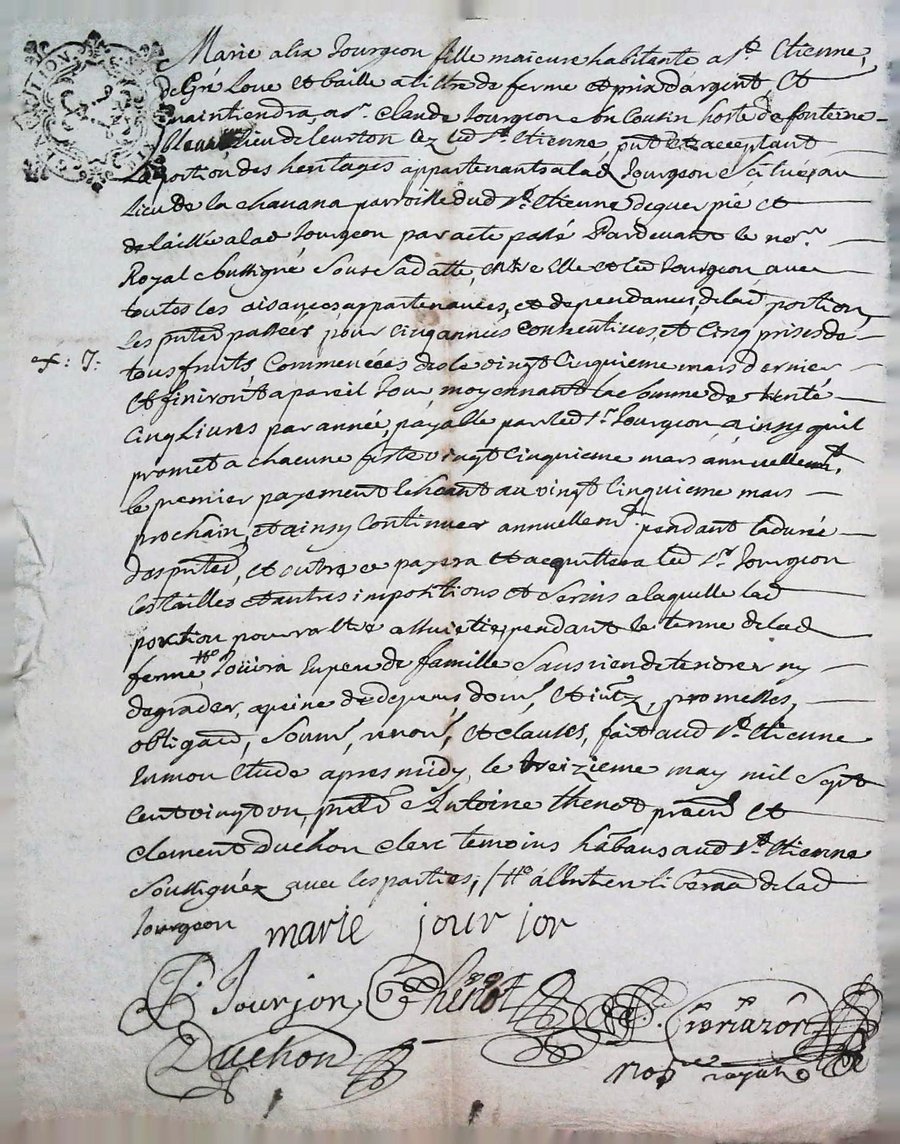 Marie alix Jourgeon fille majeure habitante a St. Etienne,
de Gré Loue et baille a titre de ferme et prix d'argent, et
maintiendra, a sr. Claude Jourgeon son Cousin hoste de fontaine
bleau, Lieu de lez led. St. Etienne, pnt et acceptant
La portion des heritages appartenants a lad Jourgeon scitués au
Lieu de la chavana parroisse dud St. Etienne deguerpie et
delaissée a lad Jourgeon par acte passé Pardevant le nore.
Royal soussigné Sous Sa datte, entre elle et led Jourgeon avec
toutes les aisances appartenances, et dependances, de lad portion,
Les pntes passées pour cinq années consecutives, et Cinq prises de
tous fruits Commencées des le vingt Cinquieme mars dernier
Et finiront a pareil Jour moyennant la somme de trente
Cinq Livres par année, payable par led Sr. Jourgeon, ainsy qu'il
promet a chacune feste vingt Cinquieme mars annuellemt.
le premier payement echeant au vingt Cinquieme mars
prochain, et ainsy Continuer annuellemt. pendant la durée
des pntes, et outre ce payera et acquittera led Sr. Jourgeon
Les tailles et autres impositions et servis a laquelle lad
portion pourra être assujettie, pendant le terme de lad
ferme, Jouira En pere de famille Sans rien deteriorer ny
degrader, a peine de depens, dom, et intz, promesses,
obligaõ, soum, renon, et clauses, fait aud St. Etienne
En mon Etude apres midy, le treizieme may mil Sept
Cent vingt un, pnts Sr Antoine thenot praen et
Clement Duchon clerc temoins habans aud St. Etienne
Soussignéz avec les parties,
Jourgeon
x: J:
marie jour jon
J. Jourjon
thenot
Duchon
nore royal